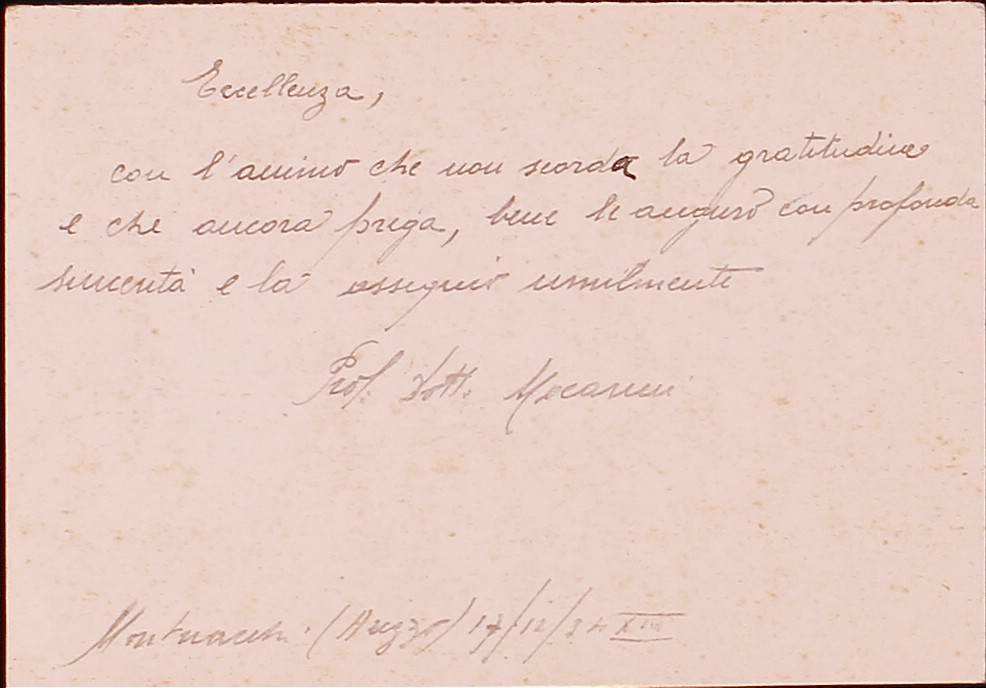 Eccellenza,
con l'animo che non scorda la gratitudine
e che ancora prega, bene le auguro con profonda
sincerità e la ossequio umilmente
Prof. Dott.
(Arezzo) 17/12/34 XIII